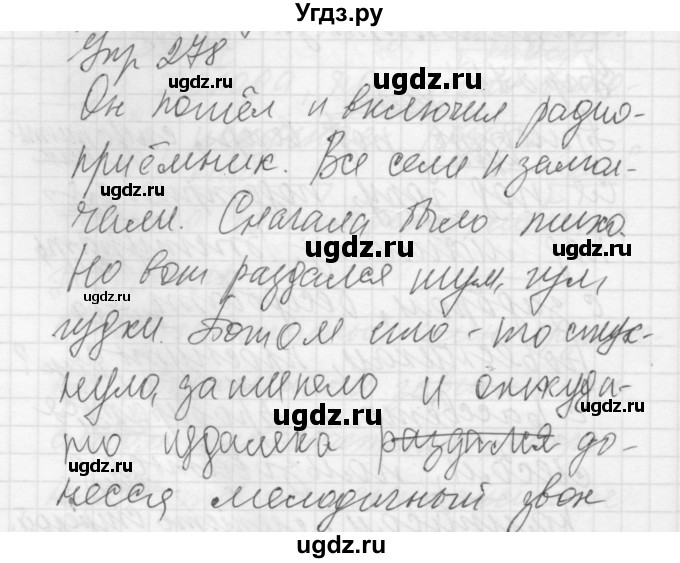 Угдз.ру
Упр 278
ugdz.ru ugdz.ru
Он пошёл и включил радио-
ugdz.ru
приёмник. Все сели и замол-
ugdz.ru
чали. Сначала было тихо.
ugdz.ru
Но вот раздался шум, гул
ugdz.ru
гудки. Потом что-то стук-
ugdz.ru
нуло, зашипело и откуда-
ugdz.ru
то издалека раздался до-
ugdz.ru
несся мелодичный звон
ugdz.ru
ugdz.ru